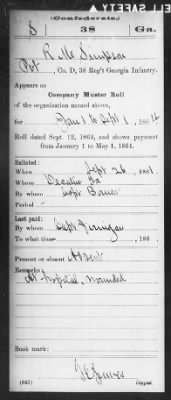 (Confederate.)
S 38 Ga.
R. M. Simpson
Pvt, Co. D, 38 Reg't Georgia Infantry.
Appears on
Company Muster Roll
of the organization named above,
for Jan 1 to Sept 1, 1864
Roll dated Sept. 12, 1864, and shows payment
from January 1 to May 1, 1864.
Enlisted:
When Sept 26, 1861.
Where Decatur Ga
By whom Capt
Period -
Last paid:
By whom Capt
To what time 186 .
Present or absent Absent
Remarks:
At hospital, wounded
Book mark:
(642) Copyist.